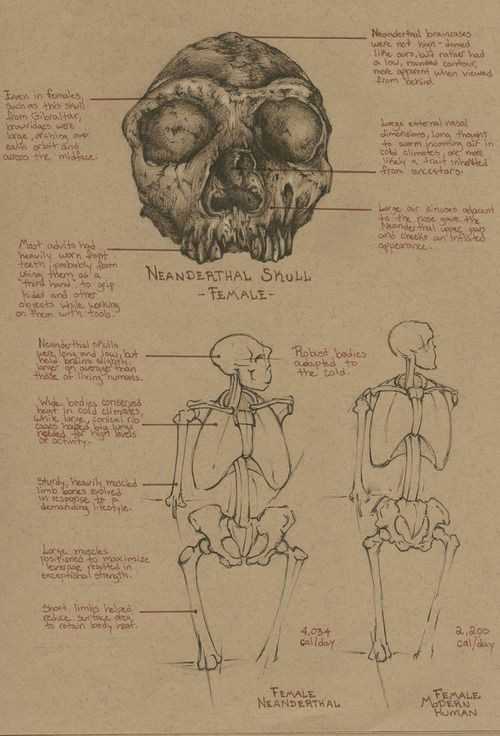 Neanderthal braincases
were not high-domed
like ours, but rather had
a low, rounded contour,
more apparent when viewed
from behind.
Even in females,
such as this skull
from Gibraltar,
browridges were
large, arching over
each orbit and
across the midface.
Large external nasal
dimensions, long thought
to warm incoming air in
cold climates, are more
likely a trait inherited
from ancestors.
Large air sinuses adjacent
to the nose gave the
Neanderthal upper jaws
and cheeks an inflated
appearance.
Most adults had
heavily worn front
teeth, probably from
using them as a
"third hand" to grip
hides and other
objects while working
on them with tools.
NEANDERTHAL SKULL
-FEMALE-
Neanderthal skulls
were long and low, but
held brains slightly
larger on average than
those of living humans.
Robust bodies
adapted to
the cold.
Wide bodies conserved
heat in cold climates,
while large, conical rib
cages housed big lungs
needed for high levels
of activity.
Sturdy, heavily muscled
limb bones evolved
in response to a
demanding lifestyle.
Large muscles
positioned to maximize
leverage resulted in
exceptional strength.
Short limbs helped
reduce surface area
to retain body heat.
4,034
cal/day
2,200
cal/day
FEMALE
NEANDERTHAL
FEMALE
MODERN
HUMAN